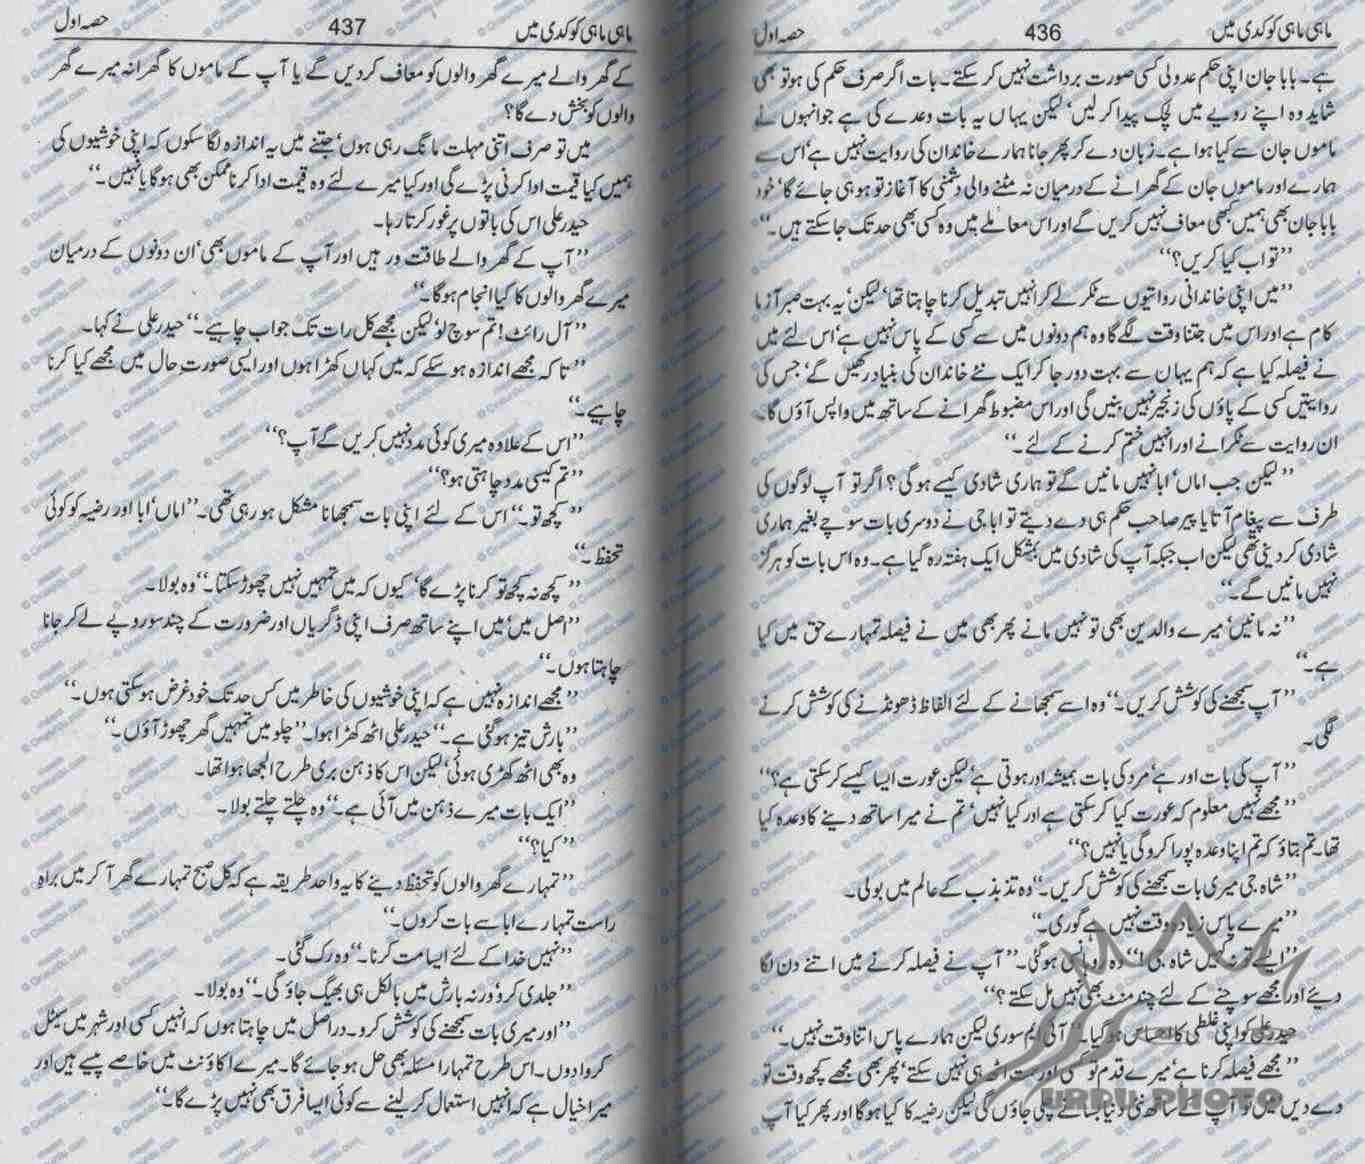 ماہی ماہی کوکدی میں 436 حصہ اول
ہے۔ بابا جان اپنی حکم عدولی کسی صورت برداشت نہیں کر سکتے۔ بات اگر صرف حکم کی ہو تو بھی
شاید وہ اپنے رویے میں لچک پیدا کر لیں‘ لیکن یہاں یہ بات وعدے کی ہے جو انہوں نے
ماموں جان سے کیا ہوا ہے۔ زبان دے کر پھر جانا ہمارے خاندان کی روایت نہیں ہے‘ اس سے
ہمارے اور ماموں جان کے گھرانے کے درمیان نہ مٹنے والی دشمنی کا آغاز تو ہو ہی جائے گا‘ خود
بابا جان بھی ہمیں کبھی معاف نہیں کریں گے اور اس معاملے میں وہ کسی بھی حد تک جا سکتے ہیں۔“
”تو اب کیا کریں؟“
”میں اپنی خاندانی روایتوں سے ٹکر لے کر انہیں تبدیل کرنا چاہتا تھا‘ لیکن‘ یہ بہت صبر آزما
کام ہے اور اس میں جتنا وقت لگے گا وہ ہم دونوں میں سے کسی کے پاس نہیں ہے‘ اس لئے میں
نے فیصلہ کیا ہے کہ ہم یہاں سے بہت دور جا کر ایک نئے خاندان کی بنیاد رکھیں گے‘ جس کی
روایتیں کسی کے پاؤں کی زنجیر نہیں بنیں گی اور اس مضبوط گھرانے کے ساتھ میں واپس آؤں گا۔
ان روایت سے ٹکرانے اور انہیں ختم کرنے کے لئے۔“
”لیکن جب اماں‘ ابا نہیں مانیں گے تو ہماری شادی کیسے ہوگی؟ اگر تو آپ لوگوں کی
طرف سے پیغام آتا یا پیر صاحب حکم ہی دے دیتے تو ابا جی نے دوسری بات سوچے بغیر ہماری
شادی کر دینی تھی لیکن اب جبکہ آپ کی شادی میں بمشکل ایک ہفتہ رہ گیا ہے۔ وہ اس بات کو ہرگز
نہیں مانیں گے۔“
”نہ مانیں‘ میرے والدین بھی تو نہیں مانے پھر بھی میں نے فیصلہ تمہارے حق میں کیا
ہے۔“
”آپ سمجھنے کی کوشش کریں۔“ وہ اسے سمجھانے کے لئے الفاظ ڈھونڈنے کی کوشش کرنے
لگی۔
”آپ کی بات اور ہے‘ مرد کی بات ہمیشہ اور ہوتی ہے‘ لیکن عورت ایسا کیسے کر سکتی ہے؟“
”مجھے نہیں معلوم کہ عورت کیا کر سکتی ہے اور کیا نہیں‘ تم نے میرا ساتھ دینے کا وعدہ کیا
تھا۔ تم بتاؤ کہ تم اپنا وعدہ پورا کرو گی یا نہیں؟“
”شاہ جی میری بات سمجھنے کی کوشش کریں۔“ وہ تذبذب کے عالم میں بولی۔
”میرے پاس زیادہ وقت نہیں ہے گوری۔“
”ایسے تو نہ کہیں شاہ جی!“ وہ روہانسی ہوگئی۔ ”آپ نے فیصلہ کرنے میں اتنے دن لگا
دیئے اور مجھے سوچنے کے لئے چند منٹ بھی نہیں مل سکتے؟“
حیدر علی کو اپنی غلطی کا احساس ہو گیا۔ ”آئی ایم سوری لیکن ہمارے پاس اتنا وقت نہیں۔“
”مجھے فیصلہ کرنا ہے‘ میرے قدم تو کسی اور سمت اٹھ ہی نہیں سکتے‘ پھر بھی مجھے کچھ وقت تو
دے دیں میں تو آپ کے ساتھ نئی دنیا بسانے چلی جاؤں گی لیکن رضیہ کا کیا ہوگا اور پھر کیا آپ
URDU PHOTO
ماہی ماہی کوکدی میں 437 حصہ اول
کے گھر والے میرے گھر والوں کو معاف کر دیں گے یا آپ کے ماموں کا گھرانہ میرے گھر
والوں کو بخش دے گا؟
میں تو صرف اتنی مہلت مانگ رہی ہوں‘ جتنے میں یہ اندازہ لگا سکوں کہ اپنی خوشیوں کی
ہمیں کیا قیمت ادا کرنی پڑے گی اور کیا میرے لئے وہ قیمت ادا کرنا ممکن بھی ہوگا یا نہیں۔“
حیدر علی اس کی باتوں پر غور کرتا رہا۔
”آپ کے گھر والے طاقت ور ہیں اور آپ کے ماموں بھی‘ ان دونوں کے درمیان
میرے گھر والوں کا کیا انجام ہوگا۔“
”آل رائٹ! تم سوچ لو‘ لیکن مجھے کل رات تک جواب چاہیے۔“ حیدر علی نے کہا۔
”تا کہ مجھے اندازہ ہو سکے کہ میں کہاں کھڑا ہوں اور ایسی صورت حال میں مجھے کیا کرنا
چاہیے۔“
”اس کے علاوہ میری کوئی مدد نہیں کریں گے آپ؟“
”تم کیسی مدد چاہتی ہو؟“
”کچھ تو۔“ اس کے لئے اپنی بات سمجھانا مشکل ہو رہی تھی۔ ”اماں‘ ابا اور رضیہ کو کوئی
تحفظ۔“
”کچھ نہ کچھ تو کرنا پڑے گا‘ کیوں کہ میں تمہیں نہیں چھوڑ سکتا۔“ وہ بولا۔
”اصل میں‘ میں اپنے ساتھ صرف اپنی ڈگریاں اور ضرورت کے چند سو روپے لے کر جانا
چاہتا ہوں۔“
”مجھے اندازہ نہیں ہے کہ اپنی خوشیوں کی خاطر میں کس حد تک خود غرض ہو سکتی ہوں۔“
”بارش تیز ہوگئی ہے۔“ حیدر علی اٹھ کھڑا ہوا۔ ”چلو میں تمہیں گھر چھوڑ آؤں۔“
وہ بھی اٹھ کھڑی ہوئی‘ لیکن اس کا ذہن بری طرح الجھا ہوا تھا۔
”ایک بات میرے ذہن میں آئی ہے۔“ وہ چلتے چلتے بولا۔
”کیا؟“
”تمہارے گھر والوں کو تحفظ دینے کا یہ واحد طریقہ ہے کہ کل صبح تمہارے گھر آ کر میں براہ
راست تمہارے ابا سے بات کروں۔“
”نہیں خدا کے لئے ایسا مت کرنا۔“ وہ رک گئی۔
”جلدی کرو‘ ورنہ بارش میں بالکل ہی بھیگ جاؤ گی۔“ وہ بولا۔
”اور میری بات سمجھنے کی کوشش کرو۔ دراصل میں چاہتا ہوں کہ انہیں کسی اور شہر میں سیٹل
کروا دوں۔ اس طرح تمہارا مسئلہ بھی حل ہو جائے گا۔ میرے اکاؤنٹ میں خاصے پیسے ہیں اور
میرا خیال ہے کہ انہیں استعمال کر لینے سے کوئی ایسا فرق بھی نہیں پڑے گا۔“